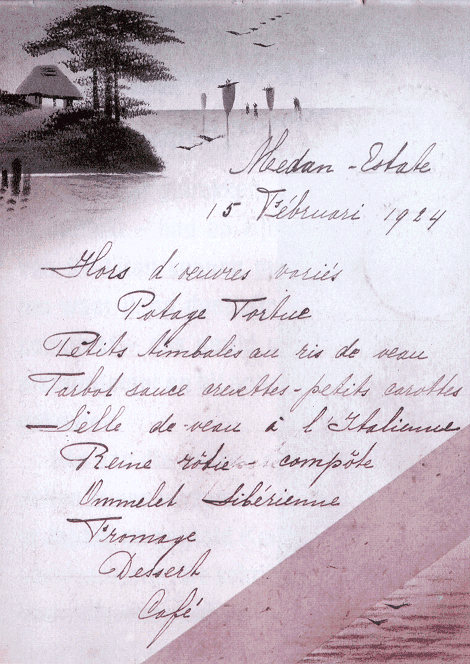 Medan - Estate
15 Fébruari 1924
Hors d'oeuvres variés
Potage Tortue
Petits timbales au ris de veau
Tarbot sauce crevettes - petits carottes
Sèlle de veau à l'Italienne
Reine rôtie - compôte
Ommelet Sibérienne
Fromage
Dessert
Café